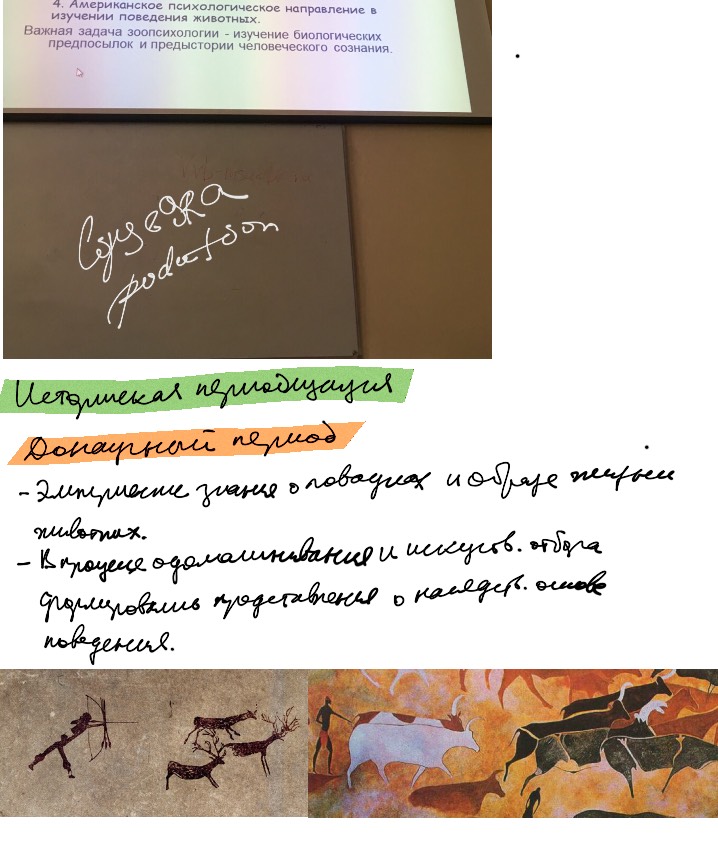 4. Американское психологическое направление в
изучении поведения животных.
Важная задача зоопсихологии - изучение биологических
предпосылок и предыстории человеческого сознания.
Историческая периодизация
Донаучный период
- Эмпирические знания о повадках и образе жизни
животных.
- В процессе одомашнивания и искусств. отбора
формировались представления о наследств. основе
поведения.